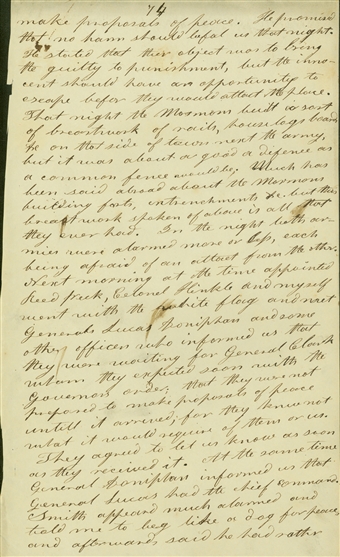 74
make proposals of peace. He promised
that no harm should befal us that night.
He stated that their object was to bring
the guilty to punishment, but the inno-
cent should have an opportunity to
escape befor they would attact the place.
That night the Mormons built a sort
of breastwork of rails, house logs boards
&c on that side of town next the army,
but it was about as good a defence as
a common fence would be. Much has
been said abroad about the Mormons
building forts, intrenchments &c. but this
breast work spoken of above is all that
they ever had. In the night both ar-
mies were alarmed more or less, each
being afraid of an attact from the other.
Next morning at the time appointed
Reed Peck, Colonel Hinkle and myself
went with the white flag and met
Generals Lucas Doniphan and some
other officers who informed us that
they were waiting for General Clark
whom they expected soon with the
Governors order; that they were not
prepared to make proposals of peace
untill it arrived; for they knew not
what it would require of them or us.
They agreed to let us know as soon
as they received it. At the same time
General Doniphan informed us that
General Lucas had the chief command.
Smith appeard much alarmed and
told me to beg like a dog for peace,
and afterwards said he had rather